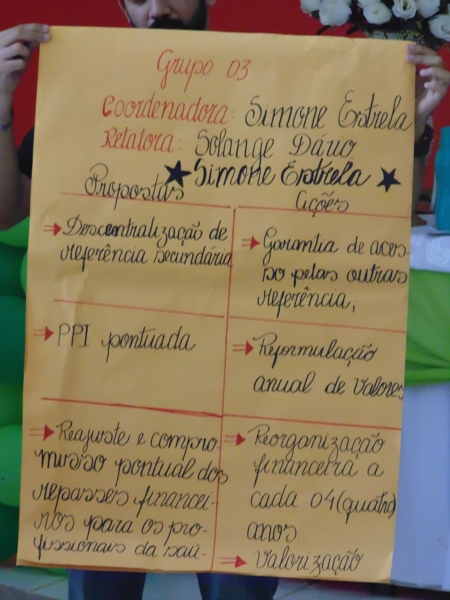 Grupo 03
Coordenadora: Simone Estrela
Relatora: Solange Dário
Simone Estrela
Propostas
Ações
⇒ Descentralização de
referência secundária
⇒ Garantia de aces-
so pelas outras
referência,
⇒ PPI pontuada
⇒ Reformulação
anual de valores
⇒ Reajuste e compro-
misso pontual dos
repasses financei-
ros para os pro-
fissionais da saú-
⇒ Reorganização
financeira a
cada 04 (quatro)
anos
⇒ Valorização